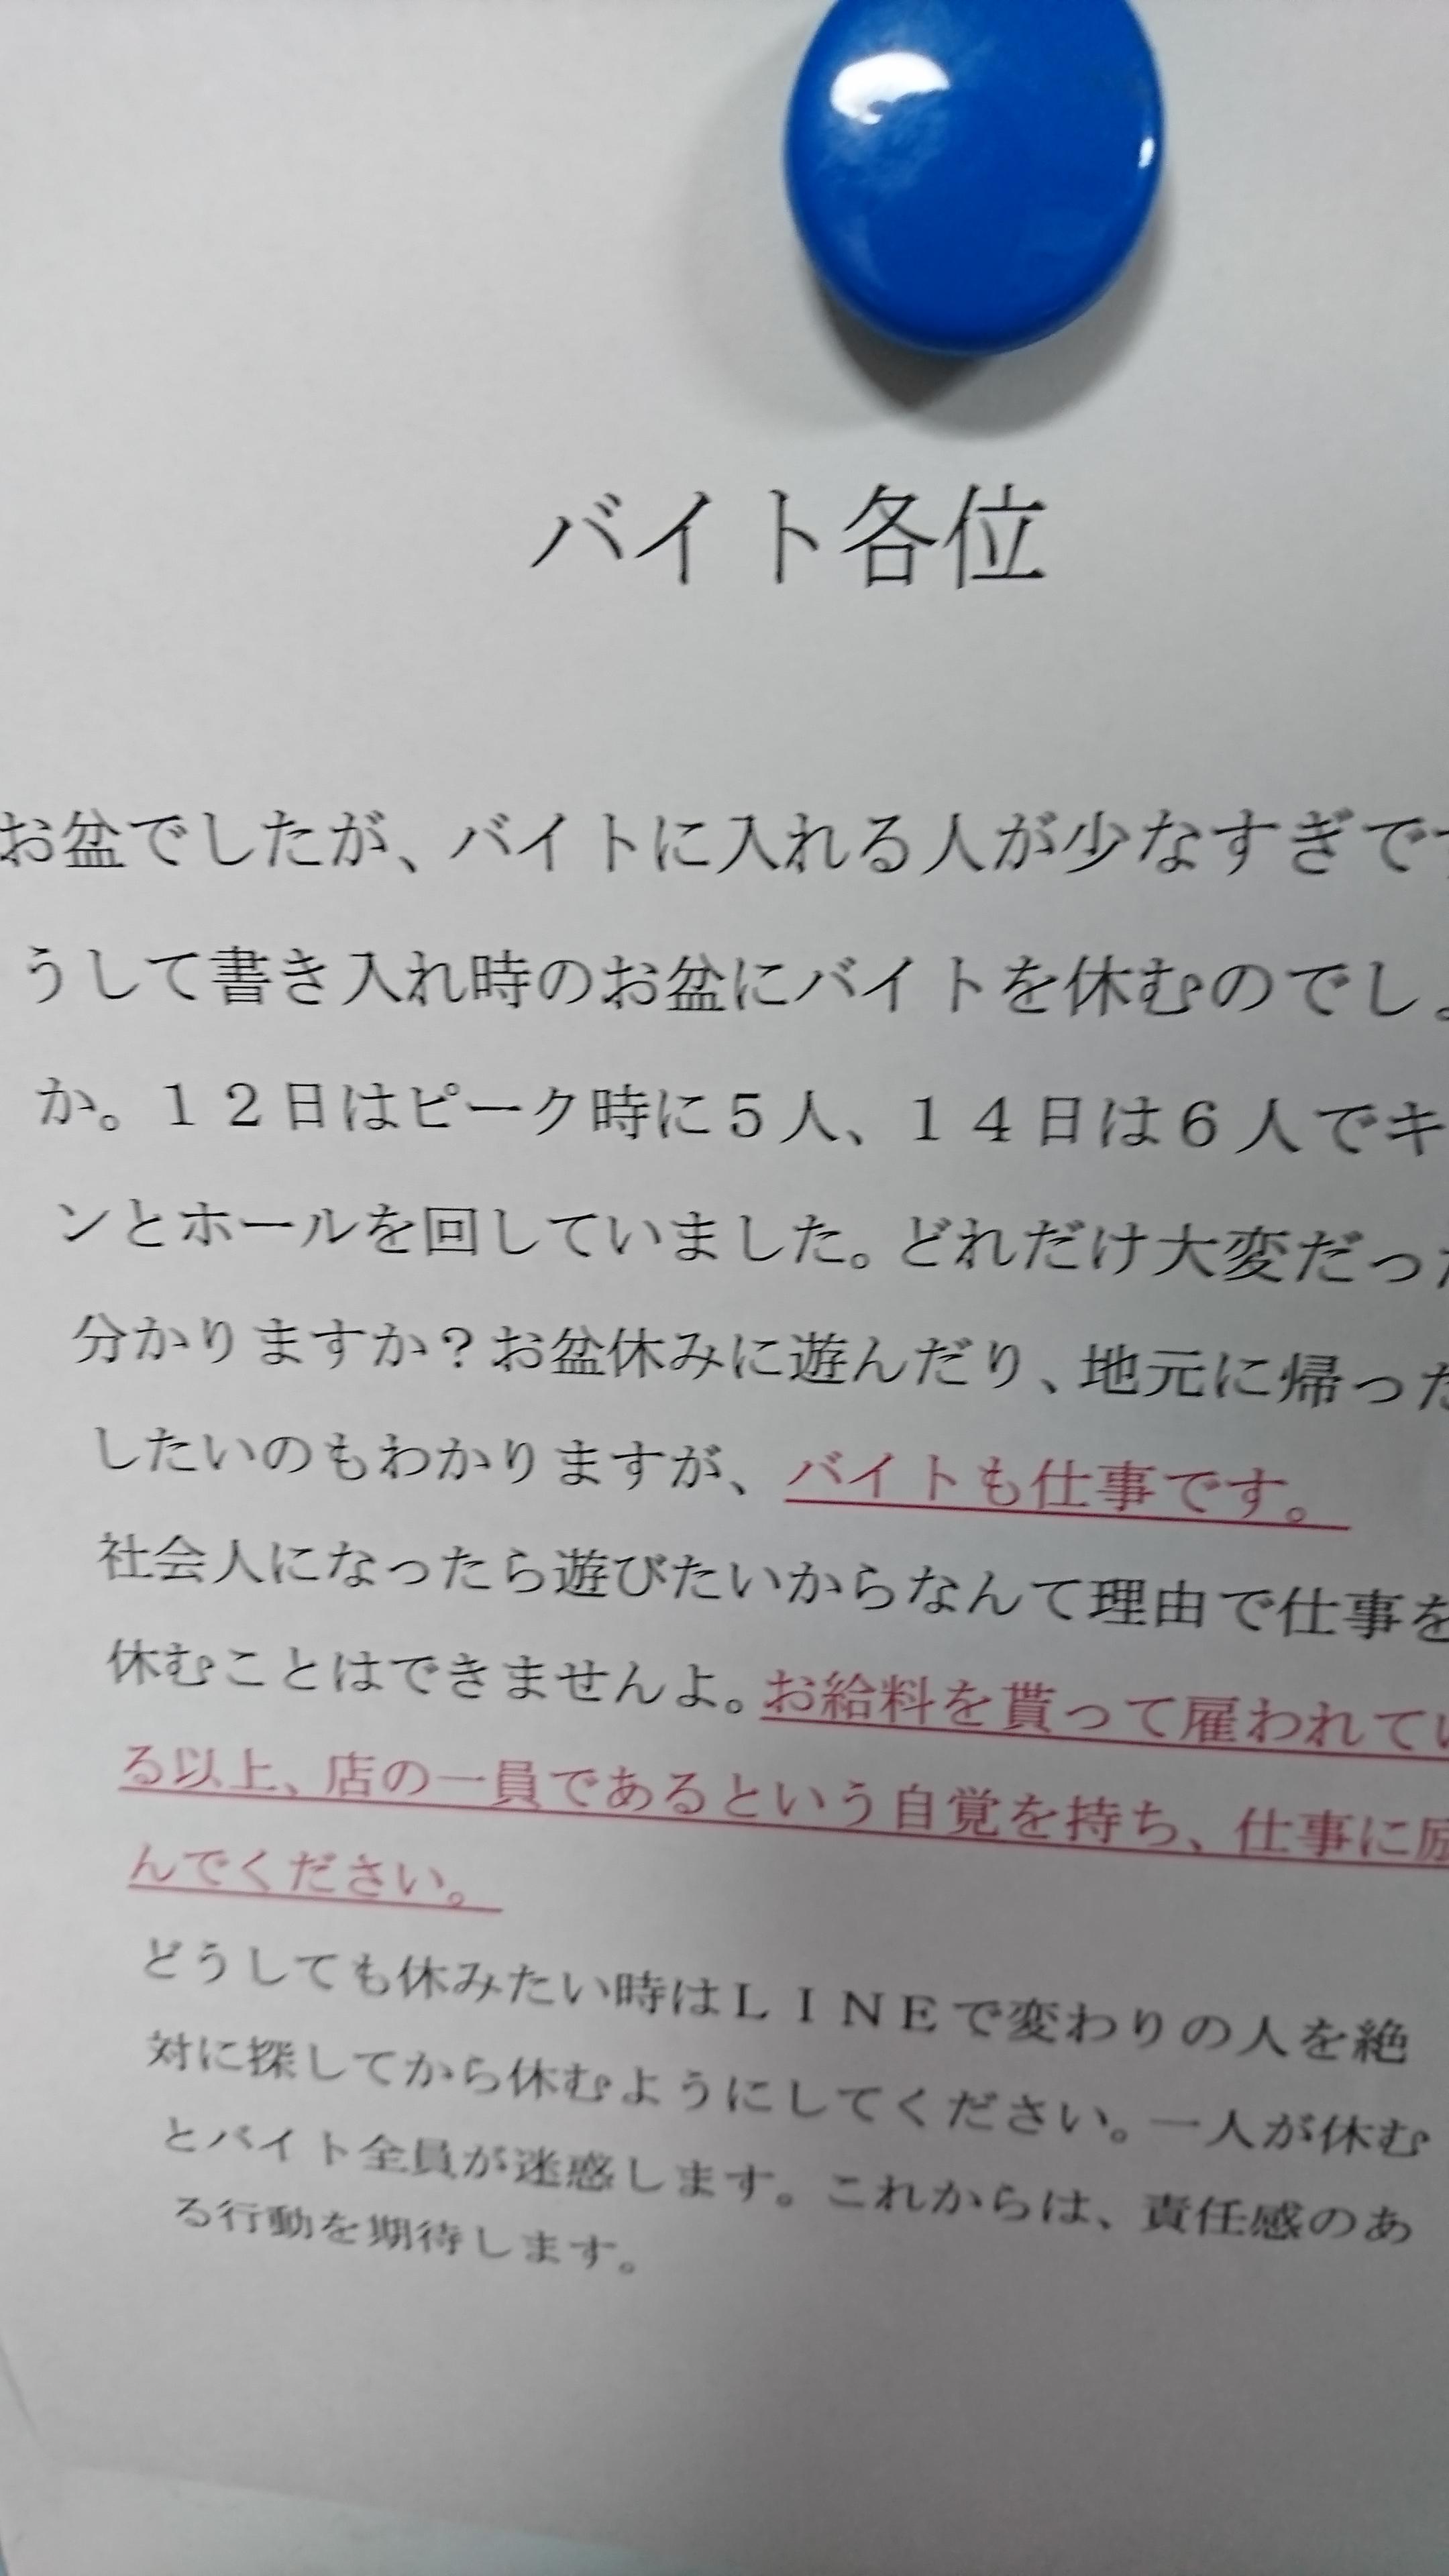 バイト各位
お盆でしたが、バイトに入れる人が少なすぎです
うして書き入れ時のお盆にバイトを休むのでしょ
か。１２日はピーク時に５人、１４日は６人でキ
ンとホールを回していました。どれだけ大変だった
分かりますか？お盆休みに遊んだり、地元に帰った
したいのもわかりますが、バイトも仕事です。
社会人になったら遊びたいからなんて理由で仕事を
休むことはできませんよ。お給料を貰って雇われてい
る以上、店の一員であるという自覚を持ち、仕事に励
んでください。
どうしても休みたい時はＬＩＮＥで変わりの人を絶
対に探してから休むようにしてください。一人が休む
とバイト全員が迷惑します。これからは、責任感のあ
る行動を期待します。